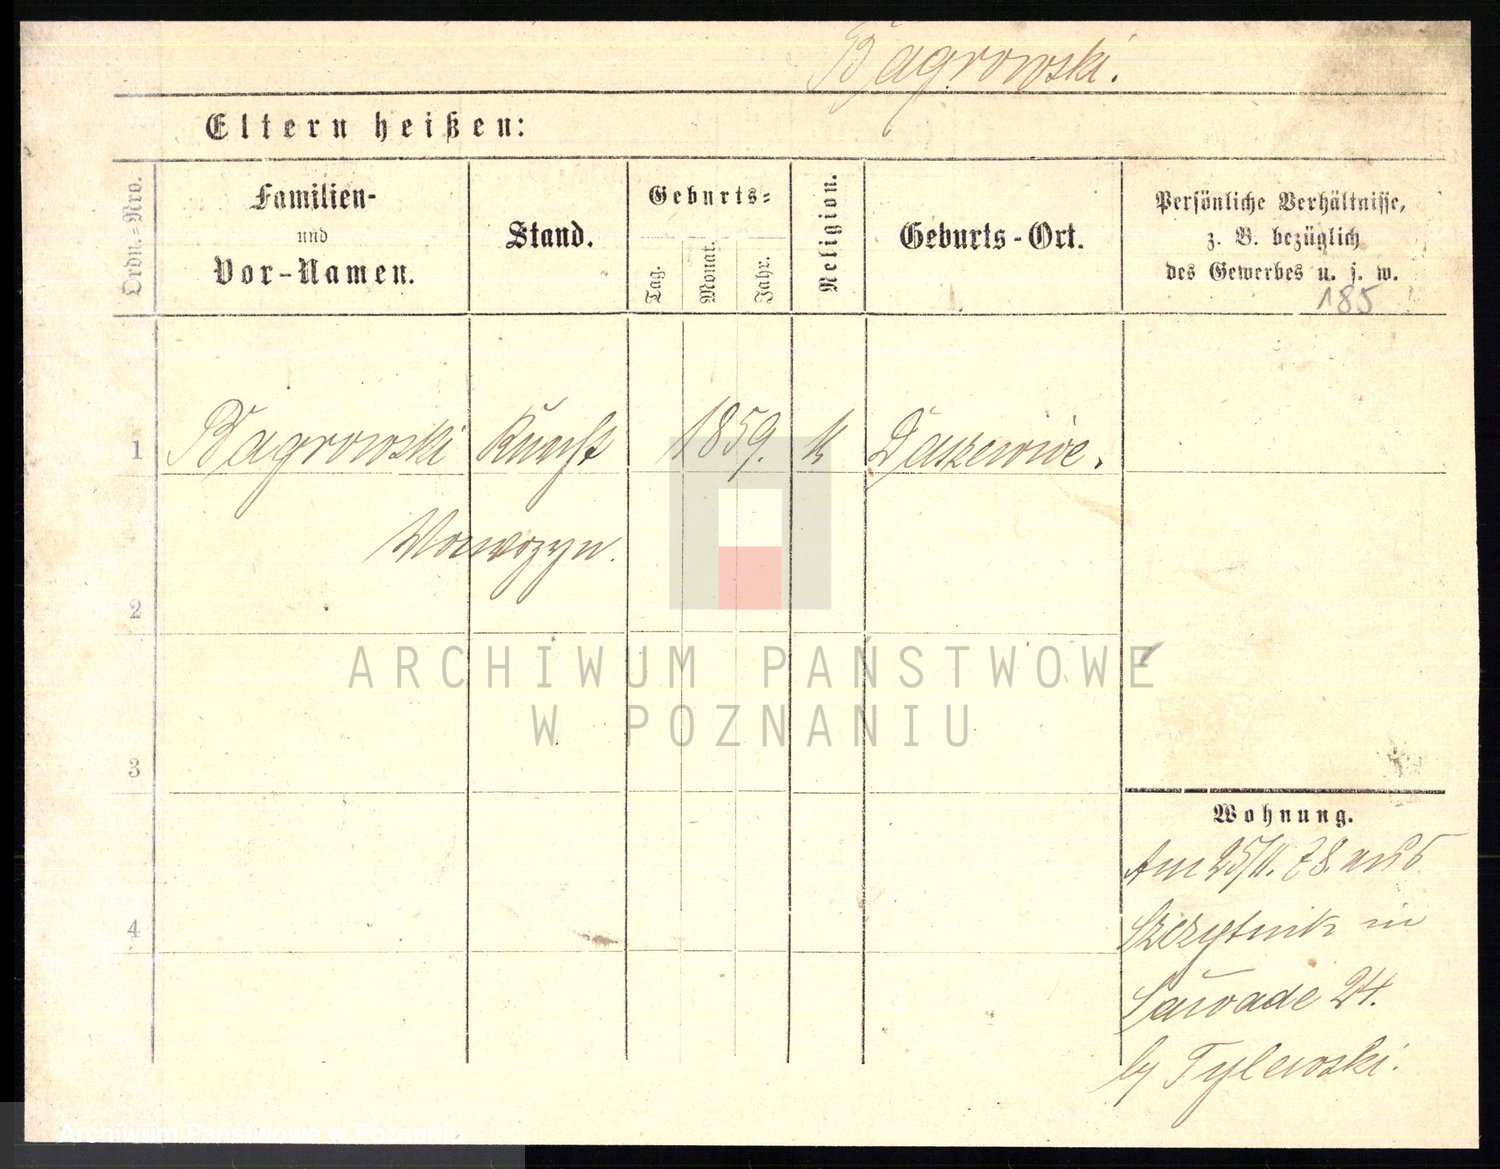 Bagrowski.
Eltern heißen:
Ordn.=Nro.
Familien-
und
Vor-Namen.
Stand.
Geburts=
Tag.
Monat.
Jahr.
Religion.
Geburts-Ort.
Persönliche Verhältnisse,
z. B. bezüglich
des Gewerbes u. s. w.
185
1
Bagrowski Knecht 1859. k Daszewice.
Wawrzyn.
2
ARCHIWUM PAŃSTWOWE
W POZNANIU
3
Wohnung.
Am 25/11. 78. aus
4
Szczytnik in
Sawade 24.
by Tylewski.
Archiwum Państwowe w Poznaniu